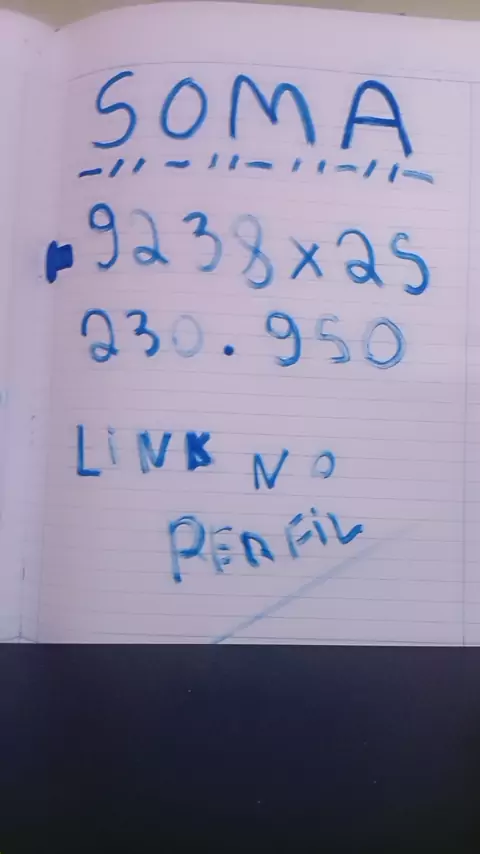 SOMA
9238x25
230.950
LiNK NO
PERFiL